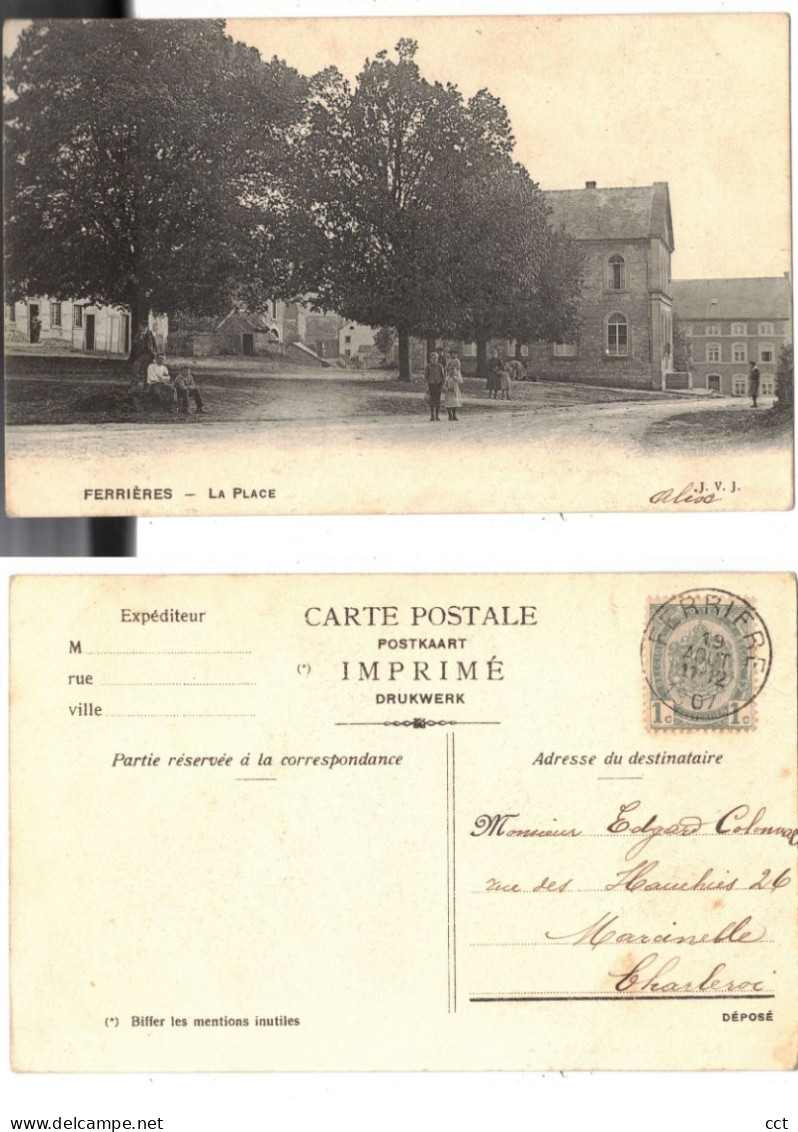 FERRIÈRES – LA PLACE
J. V. J.
Alice
Expéditeur
M
rue
ville
CARTE POSTALE
POSTKAART
(*) IMPRIMÉ
DRUKWERK
FERRIERE
19
AOUT
11-12
07
1c 1c
Partie réservée à la correspondance
Adresse du destinataire
Monsieur Edgard Colonval
rue des Hauchies 26
Marcinelle
Charleroi
(*) Biffer les mentions inutiles
DÉPOSÉ
www.delcampe.net
cct